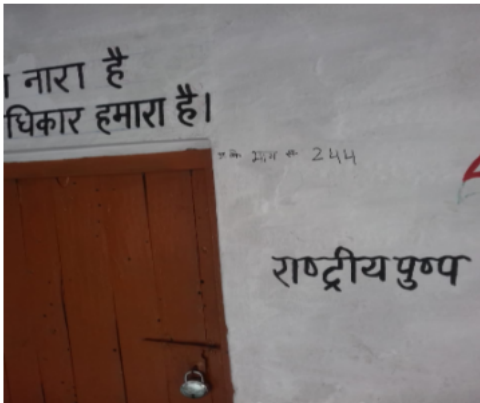 नारा है
धिकार हमारा है।
भाग 244
राष्ट्रीय पुष्प